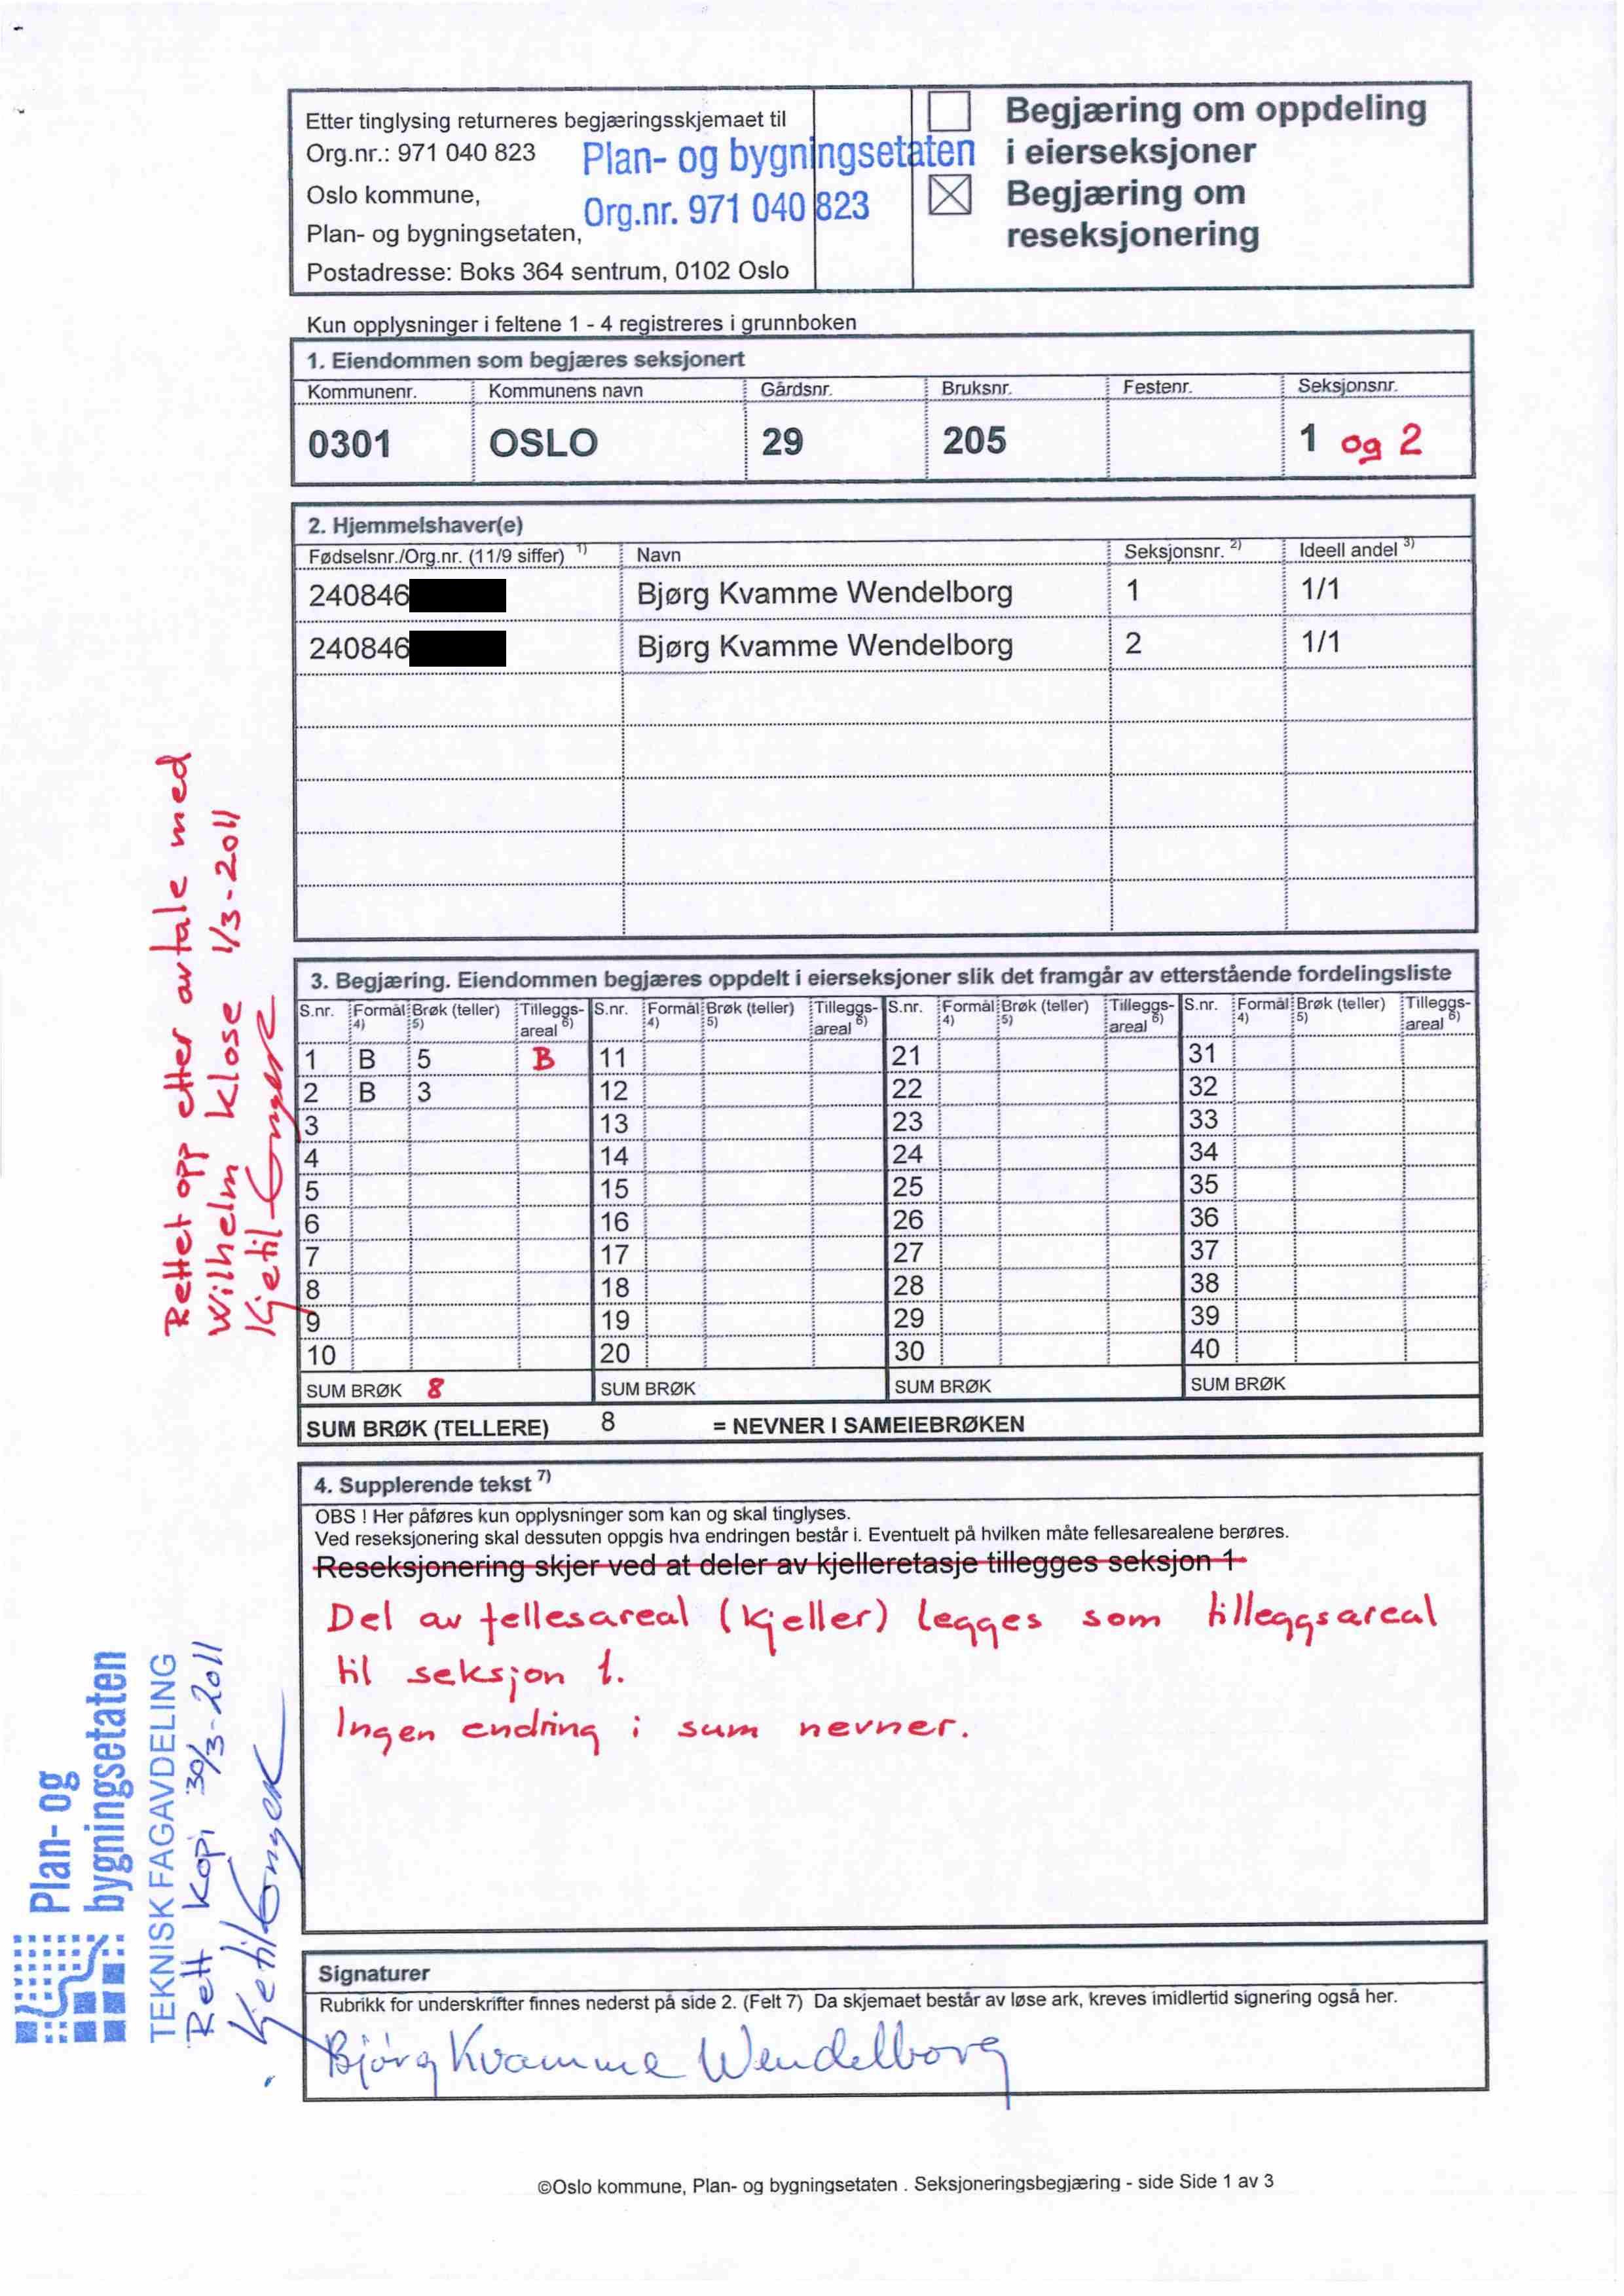 Etter tinglysing returneres begjæringsskjemaet til
Org.nr.: 971 040 823
Oslo kommune,
Plan- og bygningsetaten,
Postadresse: Boks 364 sentrum, 0102 Oslo
Plan- og bygningsetaten
Org.nr. 971 040 823
Begjæring om oppdeling
i eierseksjoner
Begjæring om
reseksjonering
Kun opplysninger i feltene 1 - 4 registreres i grunnboken
1. Eiendommen som begjæres seksjonert
Kommunenr. Kommunens navn Gårdsnr. Bruksnr. Festenr. Seksjonsnr.
0301 OSLO 29 205 1 og 2
2. Hjemmelshaver(e)
Fødselsnr./Org.nr. (11/9 siffer) 1) Navn Seksjonsnr. 2) Ideell andel 3)
240846 Bjørg Kvamme Wendelborg 1 1/1
240846 Bjørg Kvamme Wendelborg 2 1/1
Rettet opp etter avtale med
Wilhelm Klose 1/3-2011
Kjetil
3. Begjæring. Eiendommen begjæres oppdelt i eierseksjoner slik det framgår av etterstående fordelingsliste
S.nr. Formål 4) Brøk (teller) 5) Tilleggs-areal 6) S.nr. Formål 4) Brøk (teller) 5) Tilleggs-areal 6) S.nr. Formål 4) Brøk (teller) 5) Tilleggs-areal 6) S.nr. Formål 4) Brøk (teller) 5) Tilleggs-areal 6)
1 B 5 B 11 21 31
2 B 3 12 22 32
3 13 23 33
4 14 24 34
5 15 25 35
6 16 26 36
7 17 27 37
8 18 28 38
9 19 29 39
10 20 30 40
SUM BRØK 8 SUM BRØK SUM BRØK SUM BRØK
SUM BRØK (TELLERE) 8 = NEVNER I SAMEIEBRØKEN
4. Supplerende tekst 7)
OBS ! Her påføres kun opplysninger som kan og skal tinglyses.
Ved reseksjonering skal dessuten oppgis hva endringen består i. Eventuelt på hvilken måte fellesarealene berøres.
Reseksjonering skjer ved at deler av kjelleretasje tillegges seksjon 1
Del av fellesareal (kjeller) legges som tilleggsareal
til seksjon 1.
Ingen endring i sum nevner.
Plan- og
bygningsetaten
TEKNISK FAGAVDELING
Rett kopi 30/3-2011
Kjetil
Signaturer
Rubrikk for underskrifter finnes nederst på side 2. (Felt 7) Da skjemaet består av løse ark, kreves imidlertid signering også her.
Bjørg Kvamme Wendelborg
©Oslo kommune, Plan- og bygningsetaten . Seksjoneringsbegjæring - side Side 1 av 3